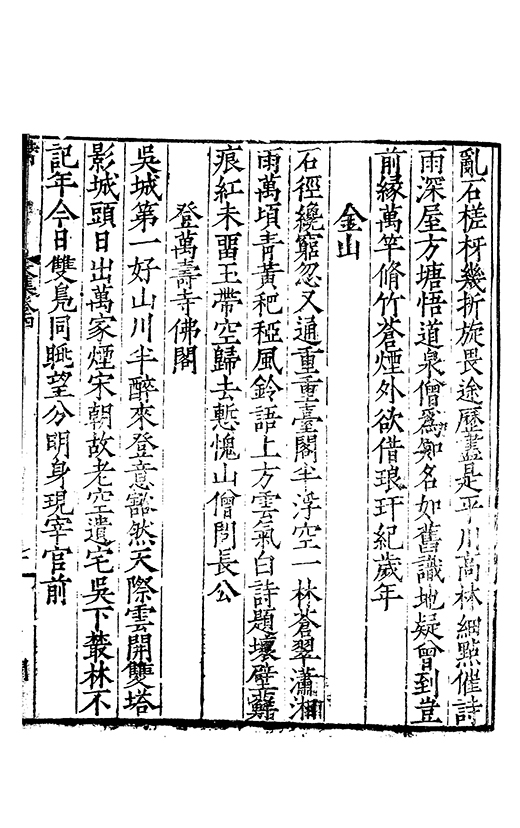 亂石槎枒幾折旋畏途歷盡是平川高林細點催詩
雨深屋方塘悟道泉僧爲知名如舊識地疑曾到豈
前縁萬竿脩竹蒼煙外欲借琅玕紀歲年
金山
石徑纔窮忽又通重重臺閣半浮空一林蒼翠瀟湘
雨萬頃靑黃䆉稏風鈴語上方雲氣白詩題壞壁蘚
痕紅未畱玉帶空歸去慙愧山僧問長公
登萬壽寺佛閣
吳城第一好山川半醉來登意豁然天際雲開雙塔
影城頭日出萬家煙宋朝故老空遺宅吳下叢林不
記年今日雙鳧同眺望分明身現宰官前